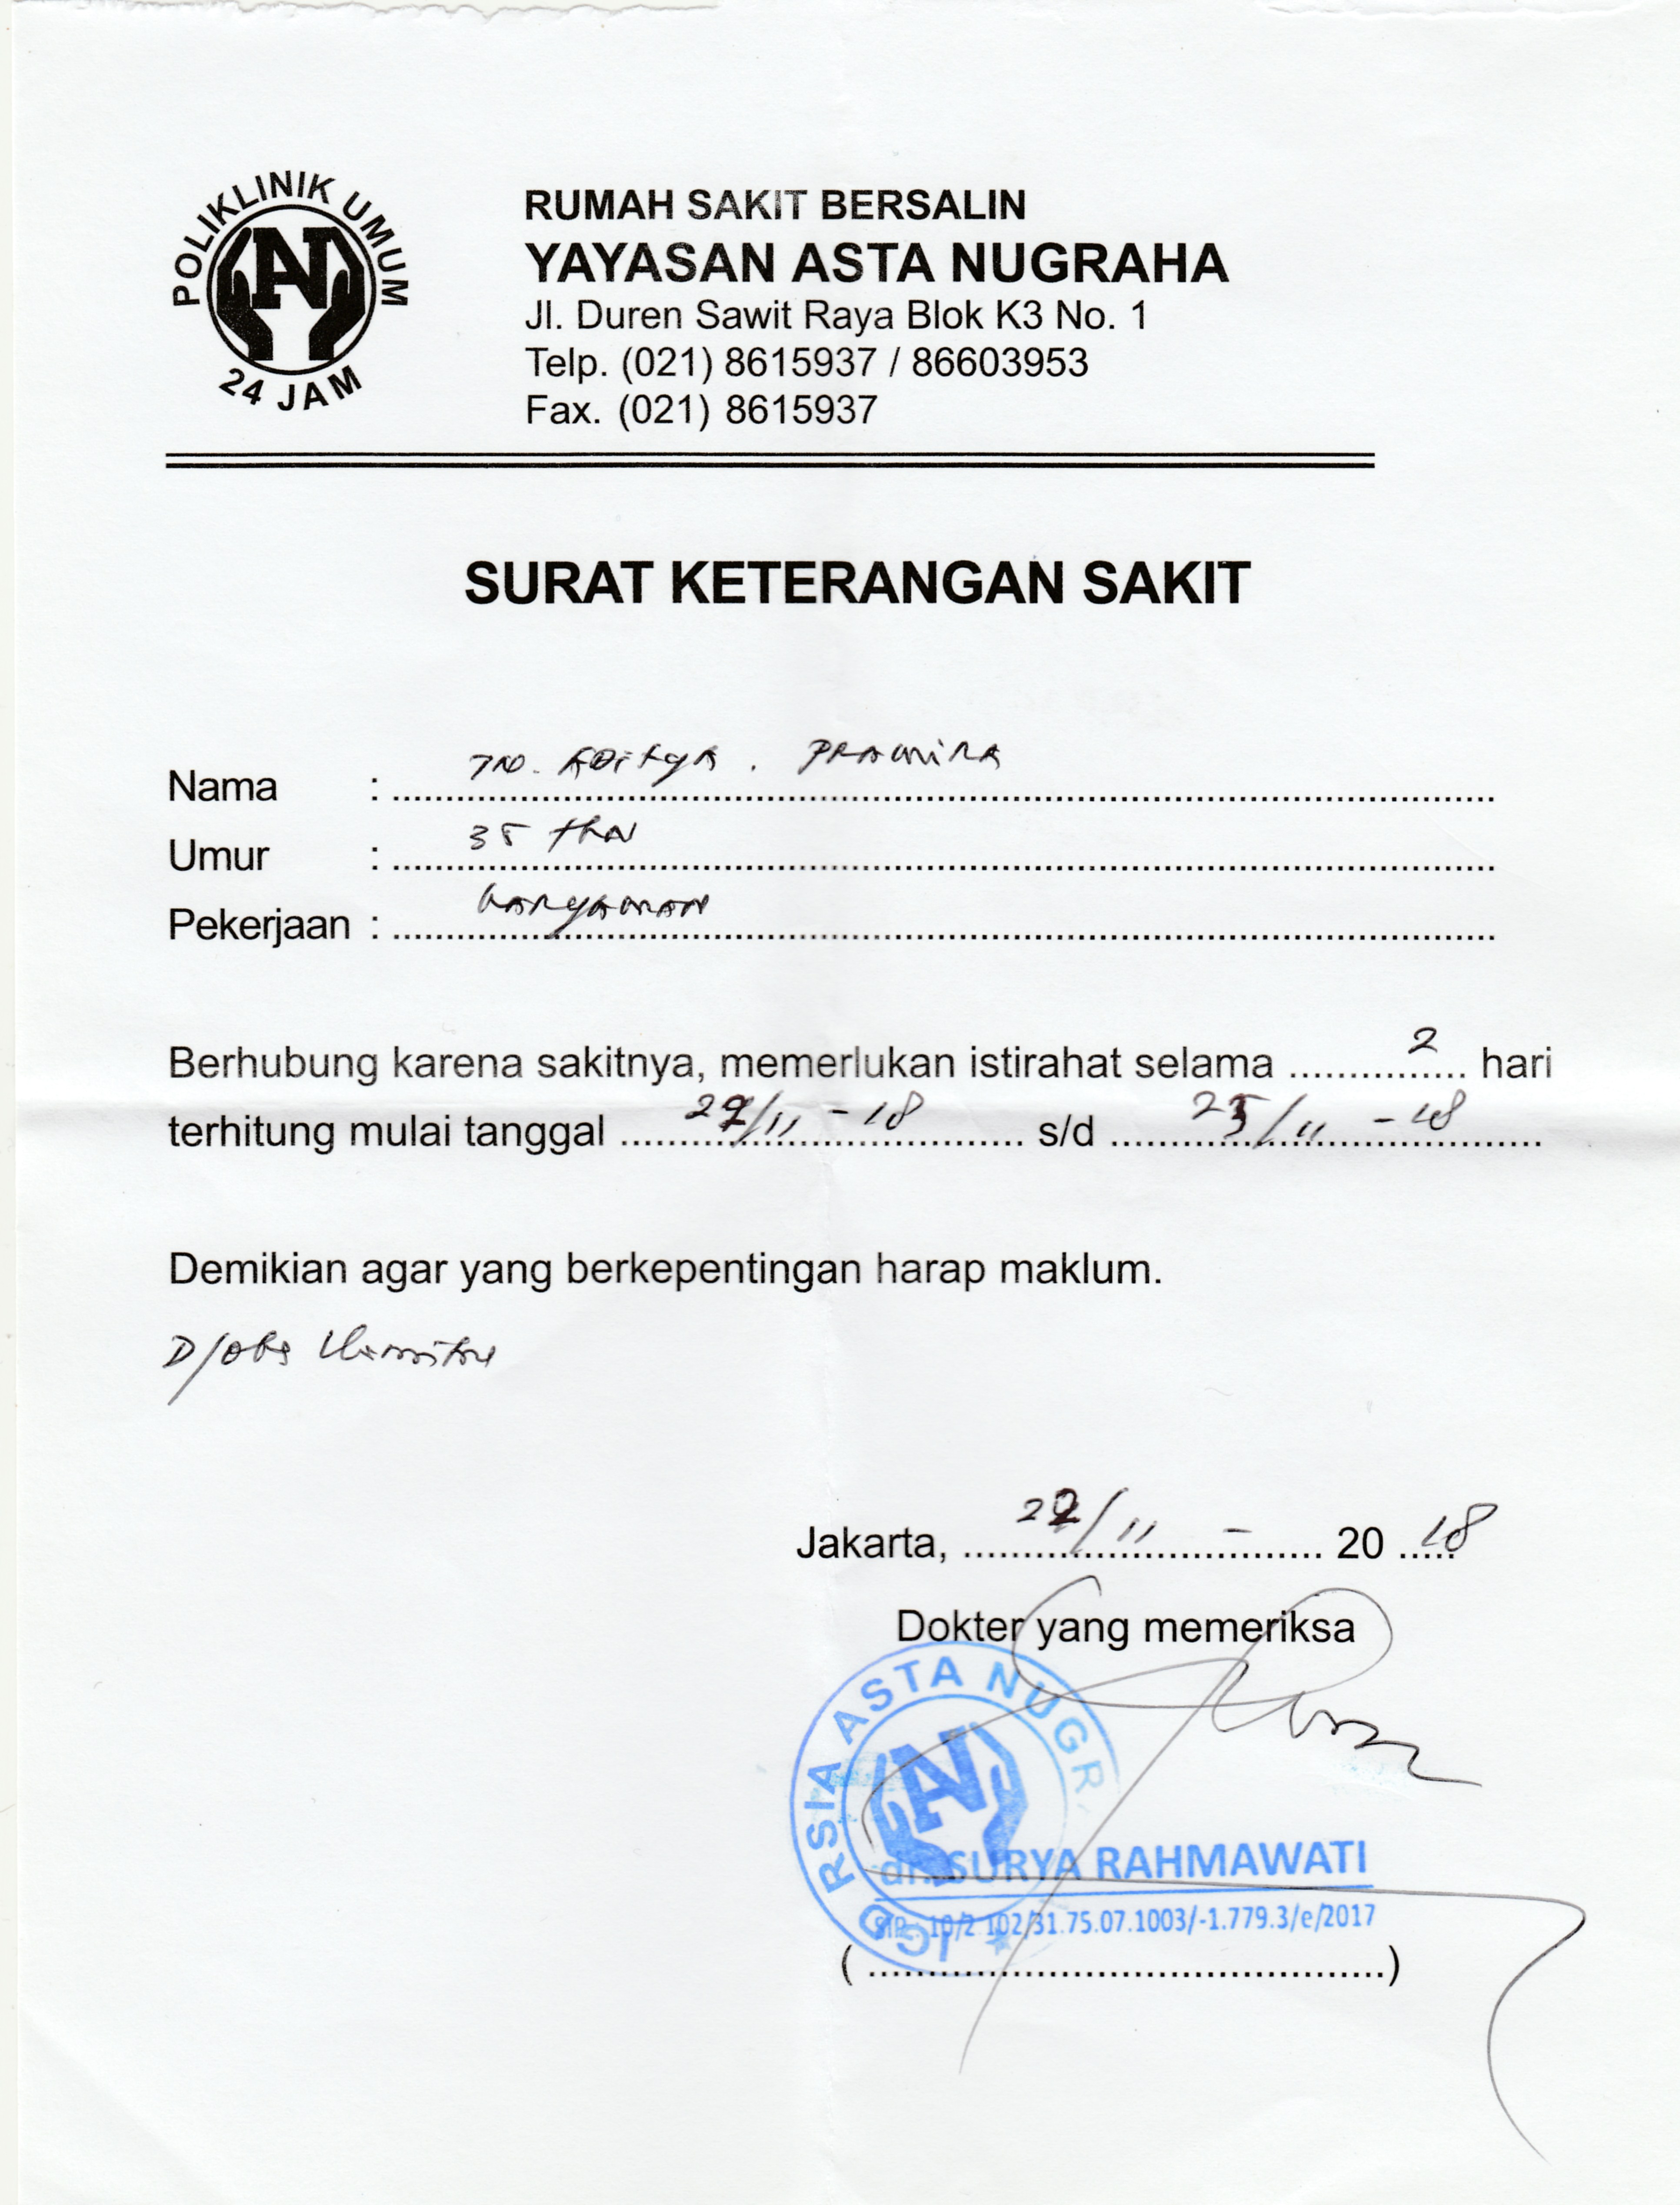 POLIKLINIK UMUM
24 JAM
RUMAH SAKIT BERSALIN
YAYASAN ASTA NUGRAHA
Jl. Duren Sawit Raya Blok K3 No. 1
Telp. (021) 8615937 / 86603953
Fax. (021) 8615937
SURAT KETERANGAN SAKIT
Nama : Tn. Aditya. Prawira
Umur : 35 thn
Pekerjaan : karyawan
Berhubung karena sakitnya, memerlukan istirahat selama 2 hari
terhitung mulai tanggal 22/11 - 18 s/d 23/11 - 18
Demikian agar yang berkepentingan harap maklum.
D/obs
Jakarta, 22/11 - 20 18
Dokter yang memeriksa
RSIA ASTA NUGR
IGD
dr. SURYA RAHMAWATI
SIP. 10/2.102/31.75.07.1003/-1.779.3/e/2017
(....................)